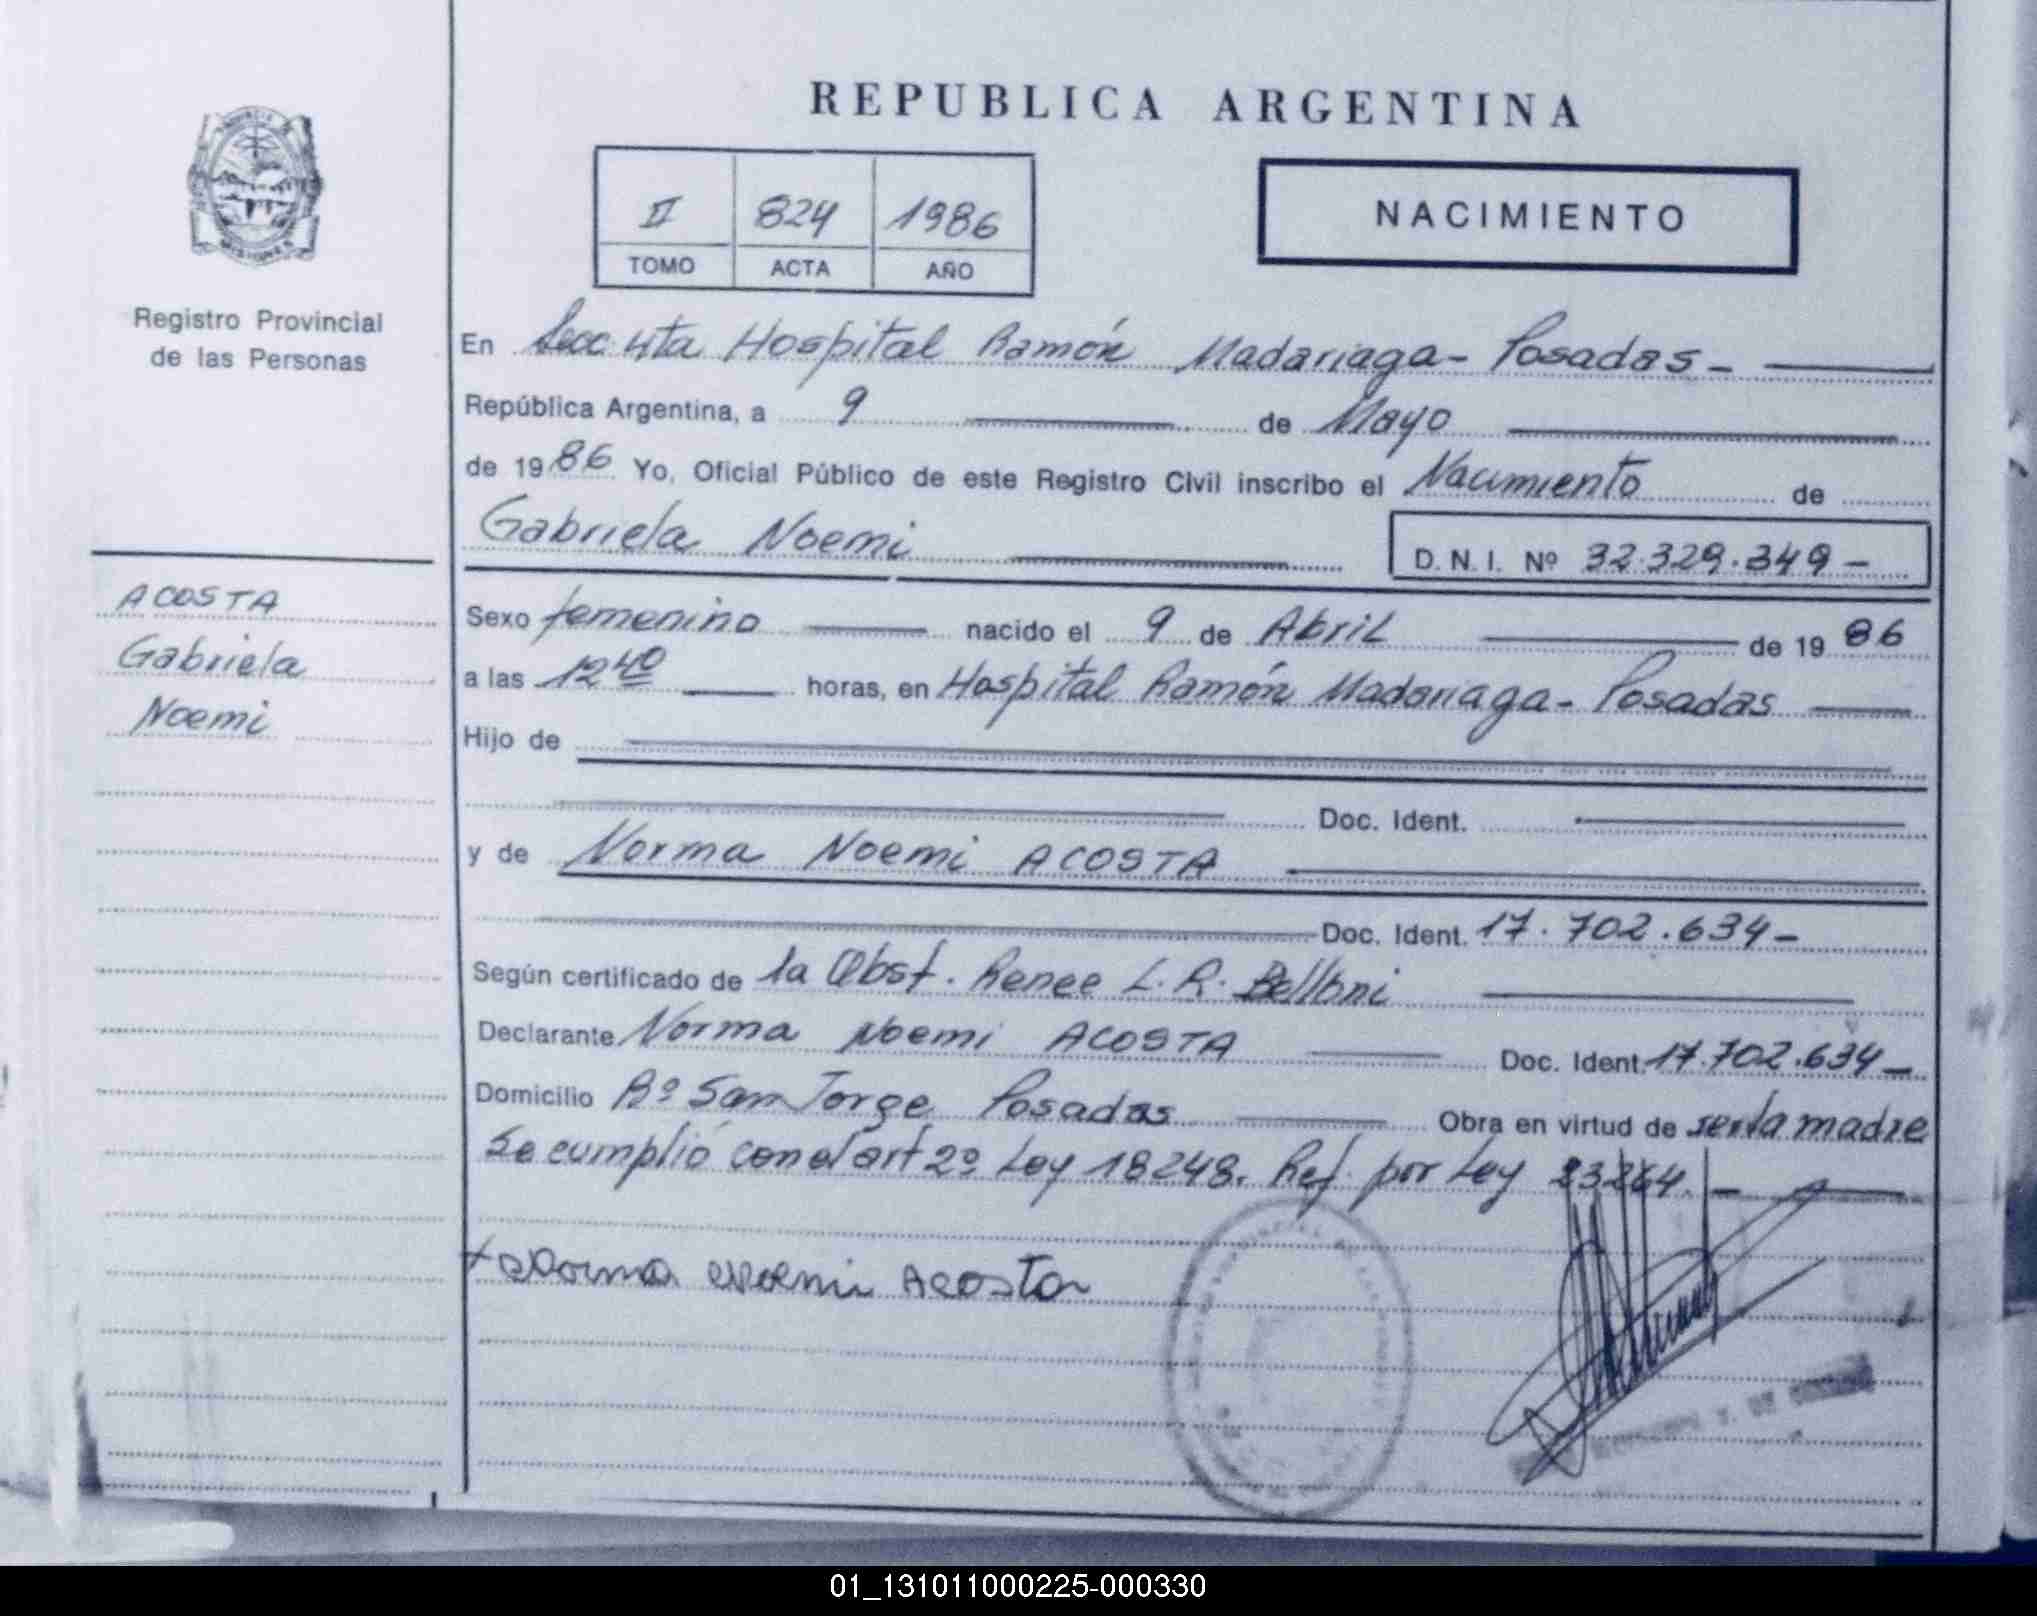 REPUBLICA ARGENTINA
II 824 1986
TOMO ACTA AÑO
NACIMIENTO
Registro Provincial
de las Personas
ACOSTA
Gabriela
Noemi
En Secc 4ta Hospital Ramón Madariaga - Posadas -
República Argentina, a 9 de Mayo
de 1986 Yo, Oficial Público de este Registro Civil inscribo el Nacimiento de
Gabriela Noemi D.N.I. Nº 32.329.349 -
Sexo femenino nacido el 9 de Abril de 1986
a las 12 40 horas, en Hospital Ramón Madariaga - Posadas
Hijo de
Doc. Ident.
y de Norma Noemi ACOSTA
Doc. Ident. 17.702.634 -
Según certificado de la Obst. Renee L. R. Belloni
Declarante Norma Noemi ACOSTA Doc. Ident. 17.702.634 -
Domicilio Bº San Jorge Posadas Obra en virtud de ser la madre
Se cumplió con el art 2º Ley 18248. Ref. por Ley 23264. -
Norma Noemi Acosta
01_131011000225-000330